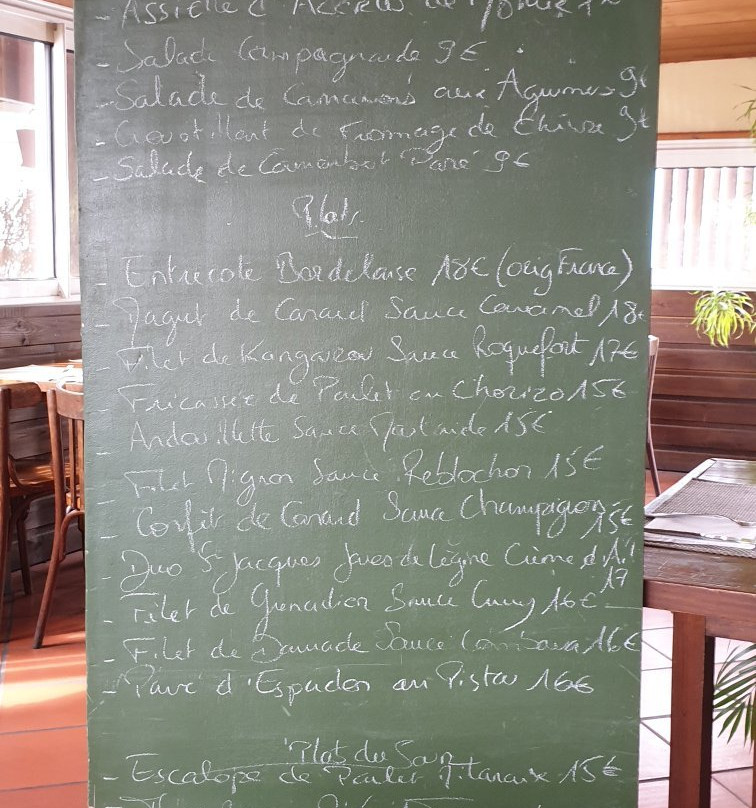 - Assiette d'Accras de Morue
- Salade Campagnarde 9€
- Salade de Camarons aux Agrumes 9€
- Croustillant de Fromage de Chèvre 9€
- Salade de Camembert Pané 9€
Plats
- Entrecote Bordelaise 18€ (orig France)
- Magret de Canard Sauce Caramel 18€
- Filet de Kangourou Sauce Roquefort 17€
- Fricassée de Poulet au Chorizo 15€
- Andouillette Sauce Moutarde 15€
- Filet Mignon Sauce Reblochon 15€
- Confit de Canard Sauce Champignon 15€
- Duo St Jacques Joues de Légine Crème d'Ail
17
- Filet de Grenadier Sauce Curry 16€
- Filet de Sauce Combava 16€
- Pavé d'Espadon au Pistou 16€
Plat du Soir
- Escalope de Poulet Milanaise 15€